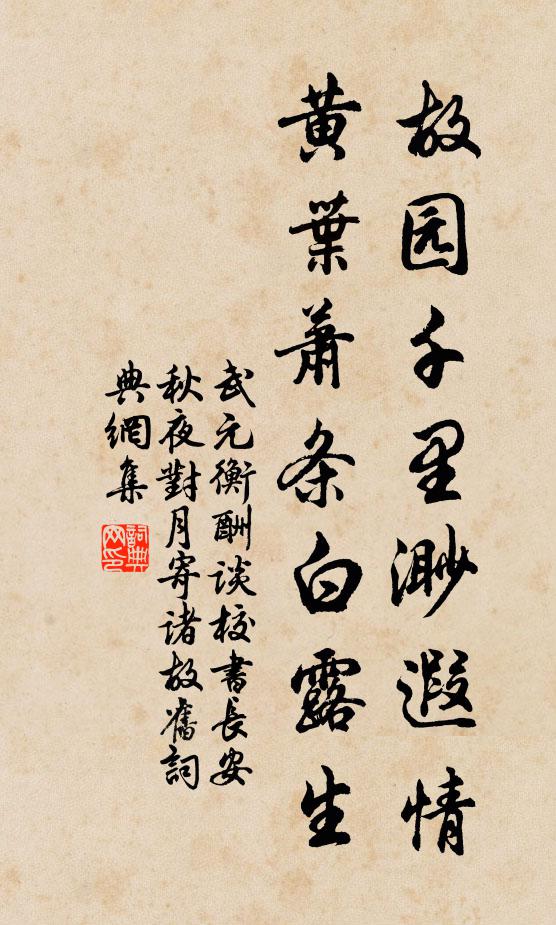 故园千里渺遐情
黄葉萧条白露生
武元衡酬谈校書長安
秋夜對月寄诸故舊詞
典網集
詞典网印